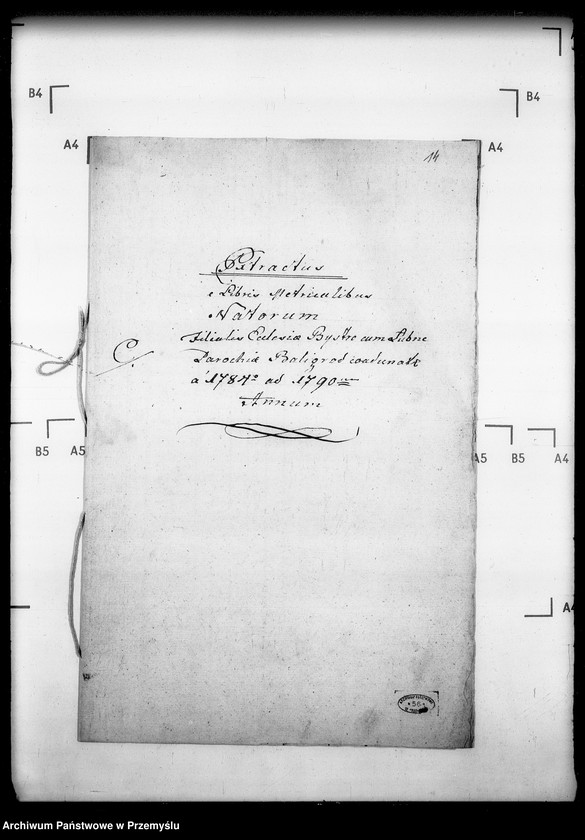 B4
B4
A4
A4
14
Extractus
e Libris Metricalibus
Natorum
Filialis Eclesiæ Bystre cum Lubne
C.
Parochiæ Baligrod coadunatæ
a 1784º ad 1790um
Annum
B5
A5
A5
B5
A4
56
Archiwum Państwowe w Przemyślu